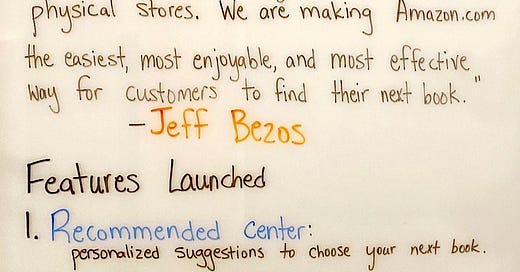 physical stores. We are making Amazon.com
the easiest, most enjoyable, and most effective
way for customers to find their next book."
-Jeff Bezos
Features Launched
1. Recommended Center:
personalized suggestions to choose your next book.